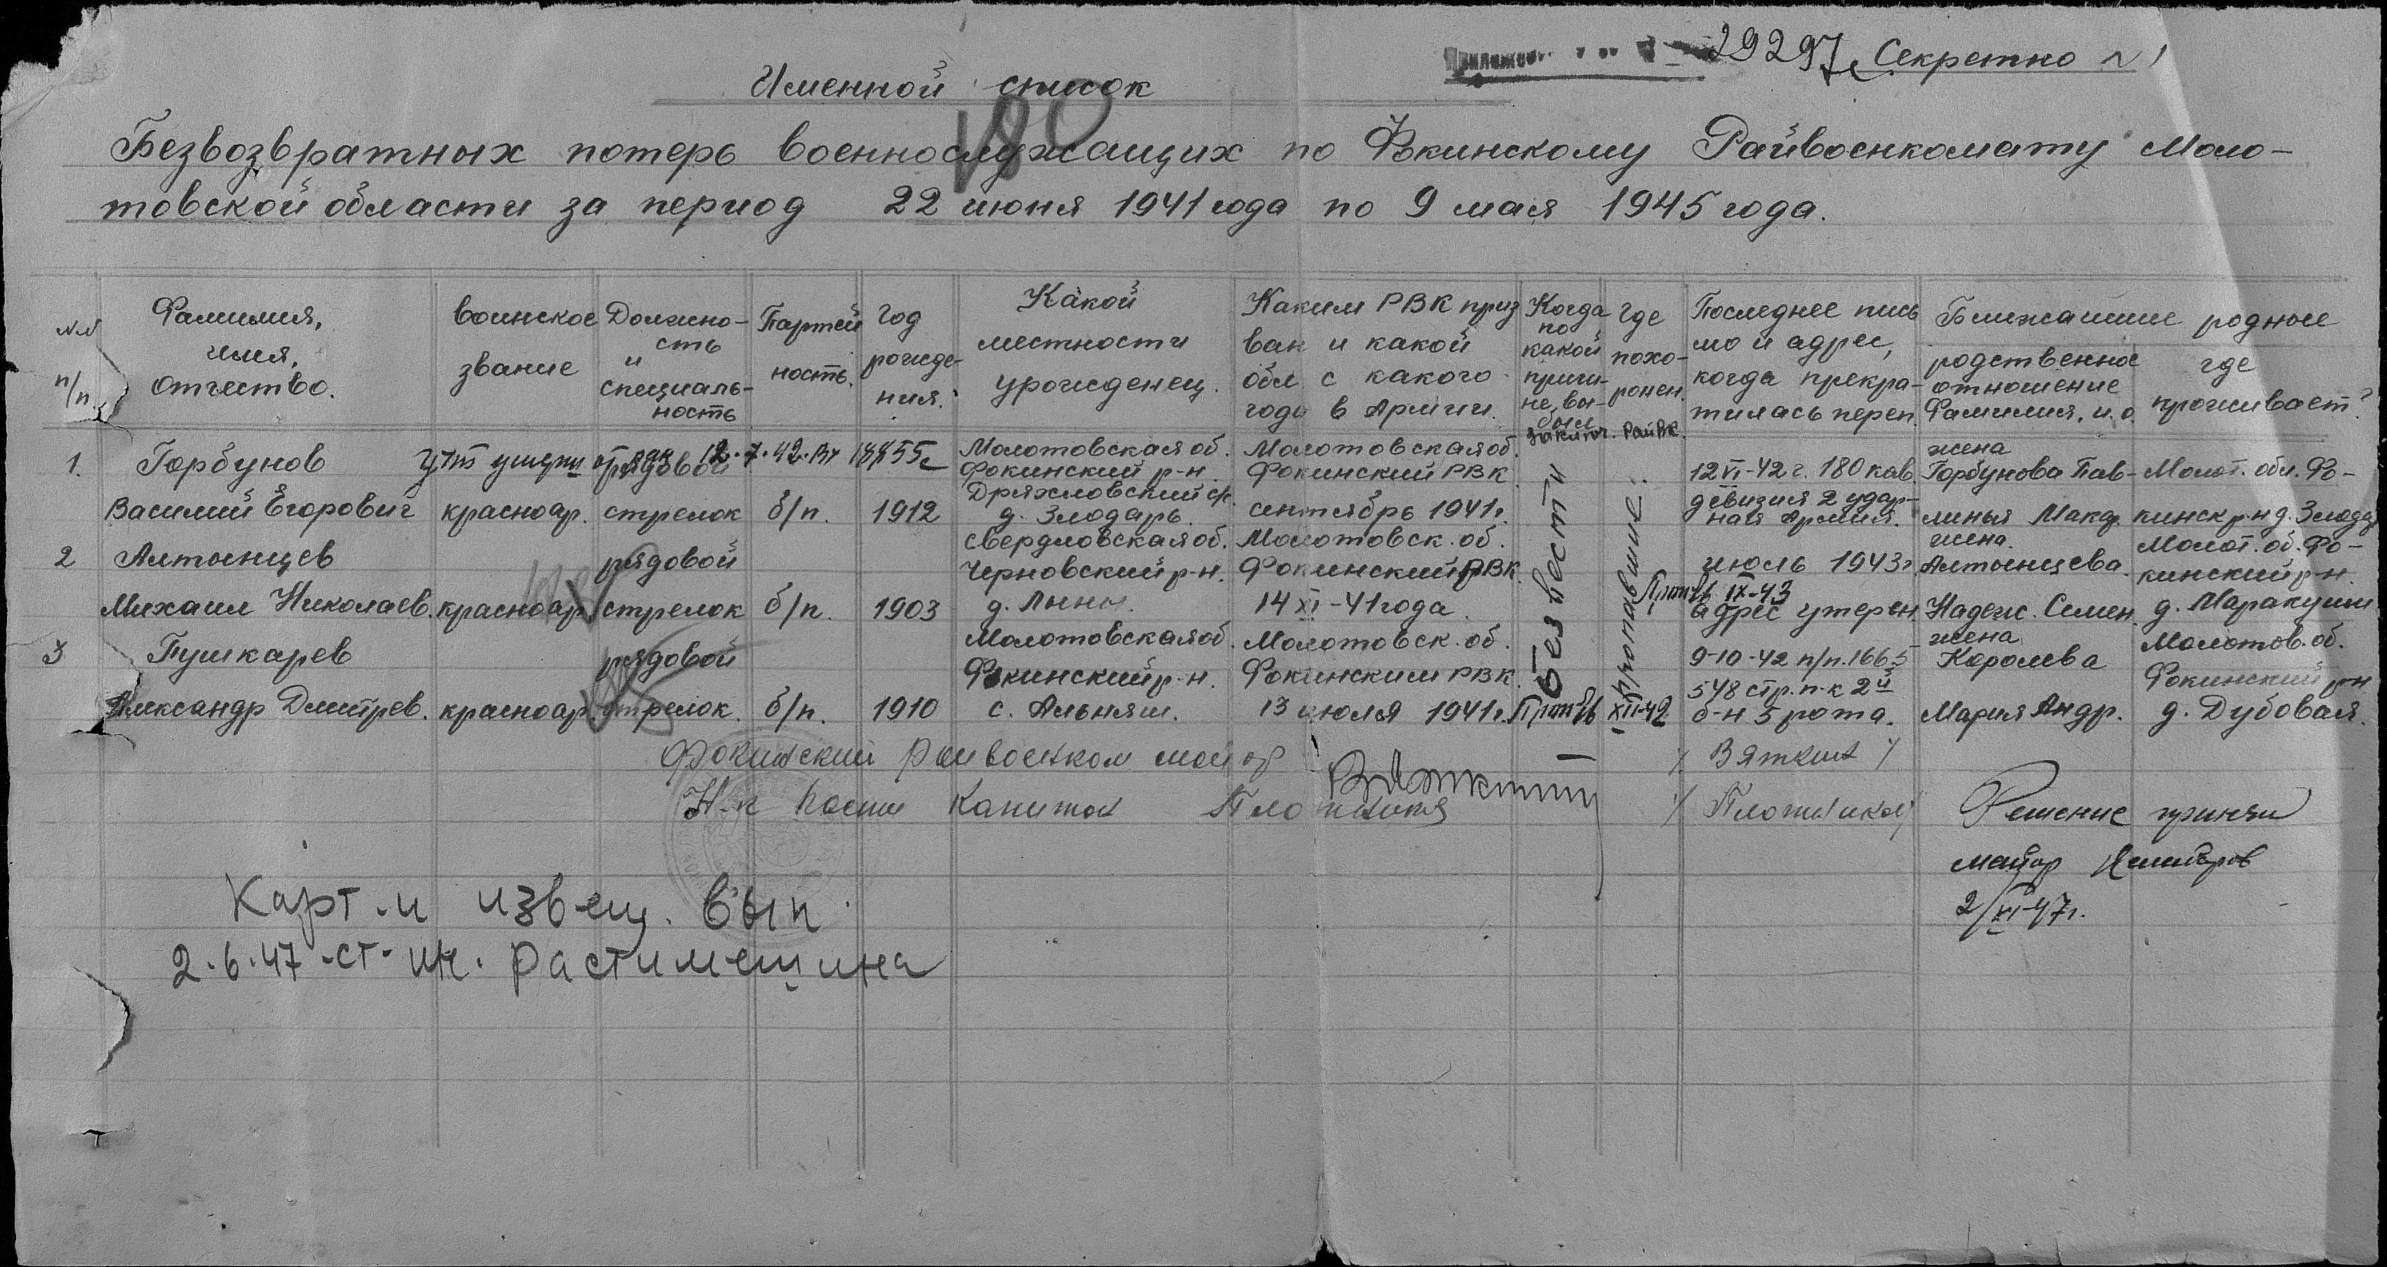 29297с Секретно
Именной список
180
Безвозвратных потерь военнослужащих по Фокинскому Райвоенкомату Моло-
товской области за период 22 июня 1941 года по 9 мая 1945 года.
№№ п/п
Фамилия, имя, отчество.
воинское звание
Должно-сть и специаль-ность
Партий ность.
Год рожде-ния.
Какой местности уроженец.
Каким РВК приз ван и какой обл с какого года в Армии.
Когда по какой причи-не, вы-был
Где похо-ронен.
заключ. РайВК.
Последнее пись мо и адрес, когда прекра-тилась переп.
Ближайшие родные
родственное отношение Фамилия, и. о.
где проживает?
1. Горбунов Василий Егорович
красноар.
рядовой стрелок
12.7.42
б/п.
1912
Молотовская об. Фокинский р-н. Дряхловский с/с д. Злодарь.
Молотовская об. Фокинский РВК сентябрь 1941г.
12 VI-42 г. 180 кав. дивизия 2 удар-ная Армия.
жена Горбунова Пав-линья Макар.
Молот. обл. Фо-кинск р-н д. Злодар
2 Алтынцев Михаил Николаев.
красноар.
рядовой стрелок
б/п.
1903
Свердловская об. Черновский р-н. д. Лыны.
Молотовск. об. Фокинский РВК. 14 XI-41 года
июль 1943г. адрес утерен.
IX-43
жена. Алтынцева Надеж. Семен.
Молот. об. Фо-кинский р-н. д. Маракуши
3 Пушкарев Александр Дмитрев.
красноар.
рядовой стрелок.
б/п.
1910
Молотовская об Фокинский р-н. с. Альняш.
Молотовск. об. Фокинским РВК. 13 июля 1941г.
без вести
пропавшие.
XII-42
9-10-42 п/п. 1665 548 стр. п-к 2й б-н 5 рота.
жена Королева Мария Андр.
Молотов. об. Фокинский рн д. Дубовая.
Фокинский Райвоенком майор / Вяткин /
Н-к части капитан / Плотников /
Решение принял
майор
2/XI-47г.
Карт. и извещ. вып.
2.6.47 - ст.